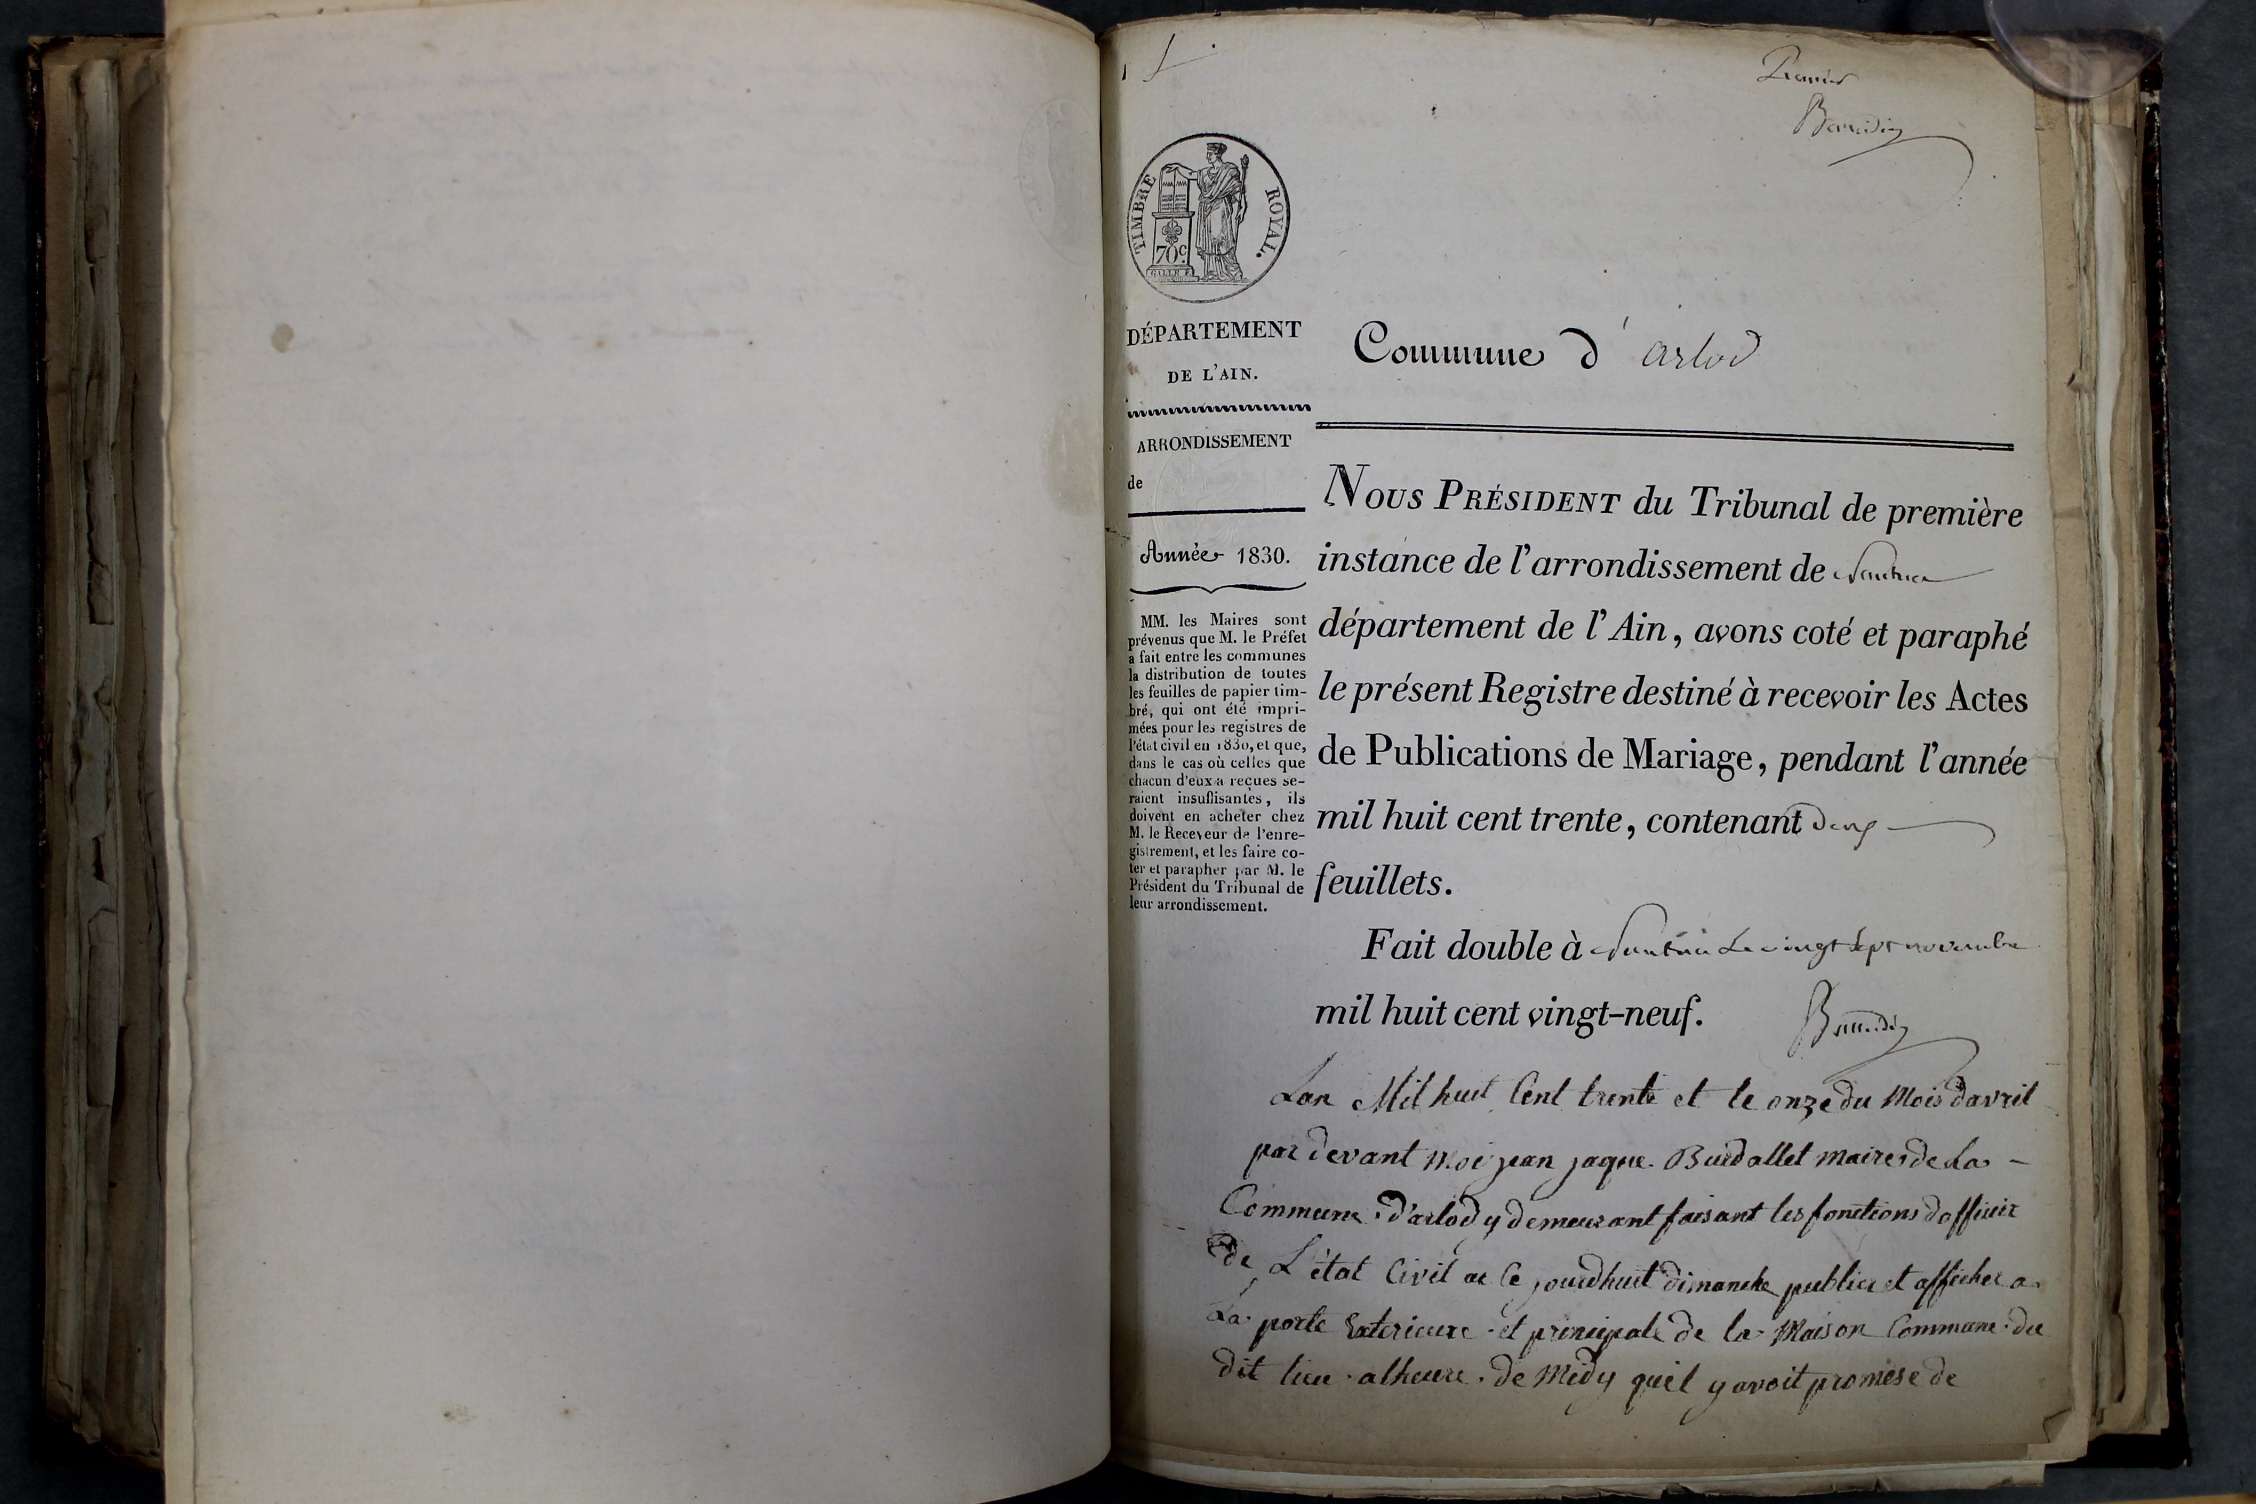 Premier
TIMBRE ROYAL.
70 c.
DÉPARTEMENT
DE L'AIN.
ARRONDISSEMENT
de
Année 1830.
MM. les Maires sont
prévenus que M. le Préfet
a fait entre les communes
la distribution de toutes
les feuilles de papier tim-
bré, qui ont été impri-
mées pour les registres de
l'état civil en 1830, et que,
dans le cas où celles que
chacun d'eux a reçues se-
raient insuffisantes, ils
doivent en acheter chez
M. le Receveur de l'enre-
gistrement, et les faire co-
ter et parapher par M. le
Président du Tribunal de
leur arrondissement.
Commune d'arlod
NOUS PRÉSIDENT du Tribunal de première
instance de l'arrondissement de Nantua
département de l'Ain, avons coté et paraphé
le présent Registre destiné à recevoir les Actes
de Publications de Mariage, pendant l'année
mil huit cent trente, contenant deux
feuillets.
Fait double à Nantua Le vingt sept novembre
mil huit cent vingt-neuf.
Lan Mil huit Cent trente et le onze du Mois davril
par devant Moi jean jaque Burdallet maire de La
Commune d'arlod y demeurant faisant les fonctions dofficier
de L'état Civil ai Ce jourdhuit dimanche publier et afficher a
La porte Exterieure et principale de la Maison Commune du
dit lieu alheure de Midy quil y avoit promese de